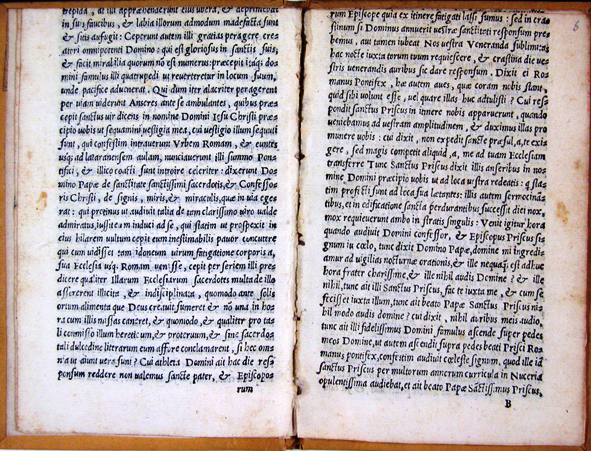 trepida, at illi apprehenderunt eius ubera, & deprimebat
in suis faucibus, & labia illorum admodum madefacta sunt
& sitis aufugit: Ceperunt autem illi gratias peragere crea
tori omnipotenti Domino: qui est gloriosus in sanctis suis,
& facit mirabilia quorum nō est numerus: præcepit itaq; dos
mini famulus illi quatrupedi ut reuerteretur in locum suum,
unde pacifice aduenerat. Qui dum iter alacriter peragerent
per uiam uiderunt Anseres ante se ambulantes, quibus præs
cepit sanctus uir dicens in nomine Domini Iesu Christi præs
cipio uobis ut sequamini uestigia mea, cui uestigio illum sequuti
sunt, qui confestim intrauerunt Vrbem Romam, & euntes
usq; ad lataranensem aulam, nunciauerunt illi summo Pons
tifici, & illico coacti sunt introire celeriter: dixerunt Dos
mino Papæ de sanctitate sanctissimi sacerdotis, & Confesso
ris Christi, de signis, miris, & miraculis, quæ in uia eges
rat: qui protinus ut audiuit talia de tam clarissimo uiro ualde
admiratus, iussit eam induci ad se, qui statim ut prospexit in
eius hilarem uultum cepit cum inestimabili pauor concutere
qui cum uidisset tam idoneum uirum fatigatione corporis a,
sua Ecclesia usq; Romam uenisse, cepit per seriem illi præs
dicere qualiter Illarum Ecclesiarum sacerdotes multa de illo
assererent illicita, & indisciplinata, quomodo ante solis
ortum alimenta que Deus creauit sumeret & nō una in hos
ra cum illis missas cantret, & quomodo, & qualiter pro tas
li commisso illum hereticum, & proteruum, & sine sacerdos
tali dulcedine litterarum eum affore conclamarent, si hec oms
nia ut aiunt uera sunt? Cui athleta Domini ait hac die ress
ponsum reddere non ualemus sancte pater, & Episcopos
rum
5
rum Episcope quia ex itinere fatigati lassi sumus: sed in cra
stinum si Dominus annuerit uestræ sanctitati responsum pres
bemus, aut tamen iubeat Nos uestra Veneranda sublimitas
hac nocte iuxta torum tuum requiescere, & crastina die ues
stris uenerandis auribus sic dare responsum. Dixit ei Ros
manus Pontifex, hæ autem aues, quæ coram nobis stant,
quid sibi uolunt esse, uel quare illas huc adtulisti? Cui ress
pondit sanctus Priscus in itinere nobis apparuerunt, quando
ueniebamus ad uestram amplitudinem, & duximus illas pro
munere uobis: cui dixit, non expedit sancte præsul, a, te exis
gere, sed magis competit aliquid, a, me ad tuam Ecclesiam
transferre Tunc Sanctus Priscus dixit illis anseribus in nos
mine Domini præcipio uobis ut ad loca uestra redeatis: q; stas
tim profecti sunt ad loca sua lætantes: illis autem sermocinās
tibus, et in edificatione sancta perdurantibus successit diei nox,
mox requieuerunt ambo in stratis singulis: Venit igitur hora
quando audiuit Domini confessor, & Episcopus Priscus sis
gnum in cœlo, tunc dixit Domino Papæ, domine mi ingredis
amur ad uigilias nocturnæ orationis, & ille nequaq; est adhuc
hora frater charissime, & ille nihil audis Domine? & ille
nihil, tunc ait illi Sanctus Priscus, fac te iuxta me, & cum se
fecisset iuxta illum, tunc ait beato Papæ Sanctus Priscus nis
hil modo audis domine? cui dixit, nihil auribus meis audio,
tunc ait illi fidelissimus Domini famulus ascende super pedes
meos Domine, ut autem ascendit supra pedes beati Prisci Ros
manus pontifex, confestim audiuit cœleste signum, quod ille iā
sanctus Priscus per multorum annerum curricula in Nuceria
opulentissima audiebat, et ait beato Papæ Sanctissimus Priscus,
B